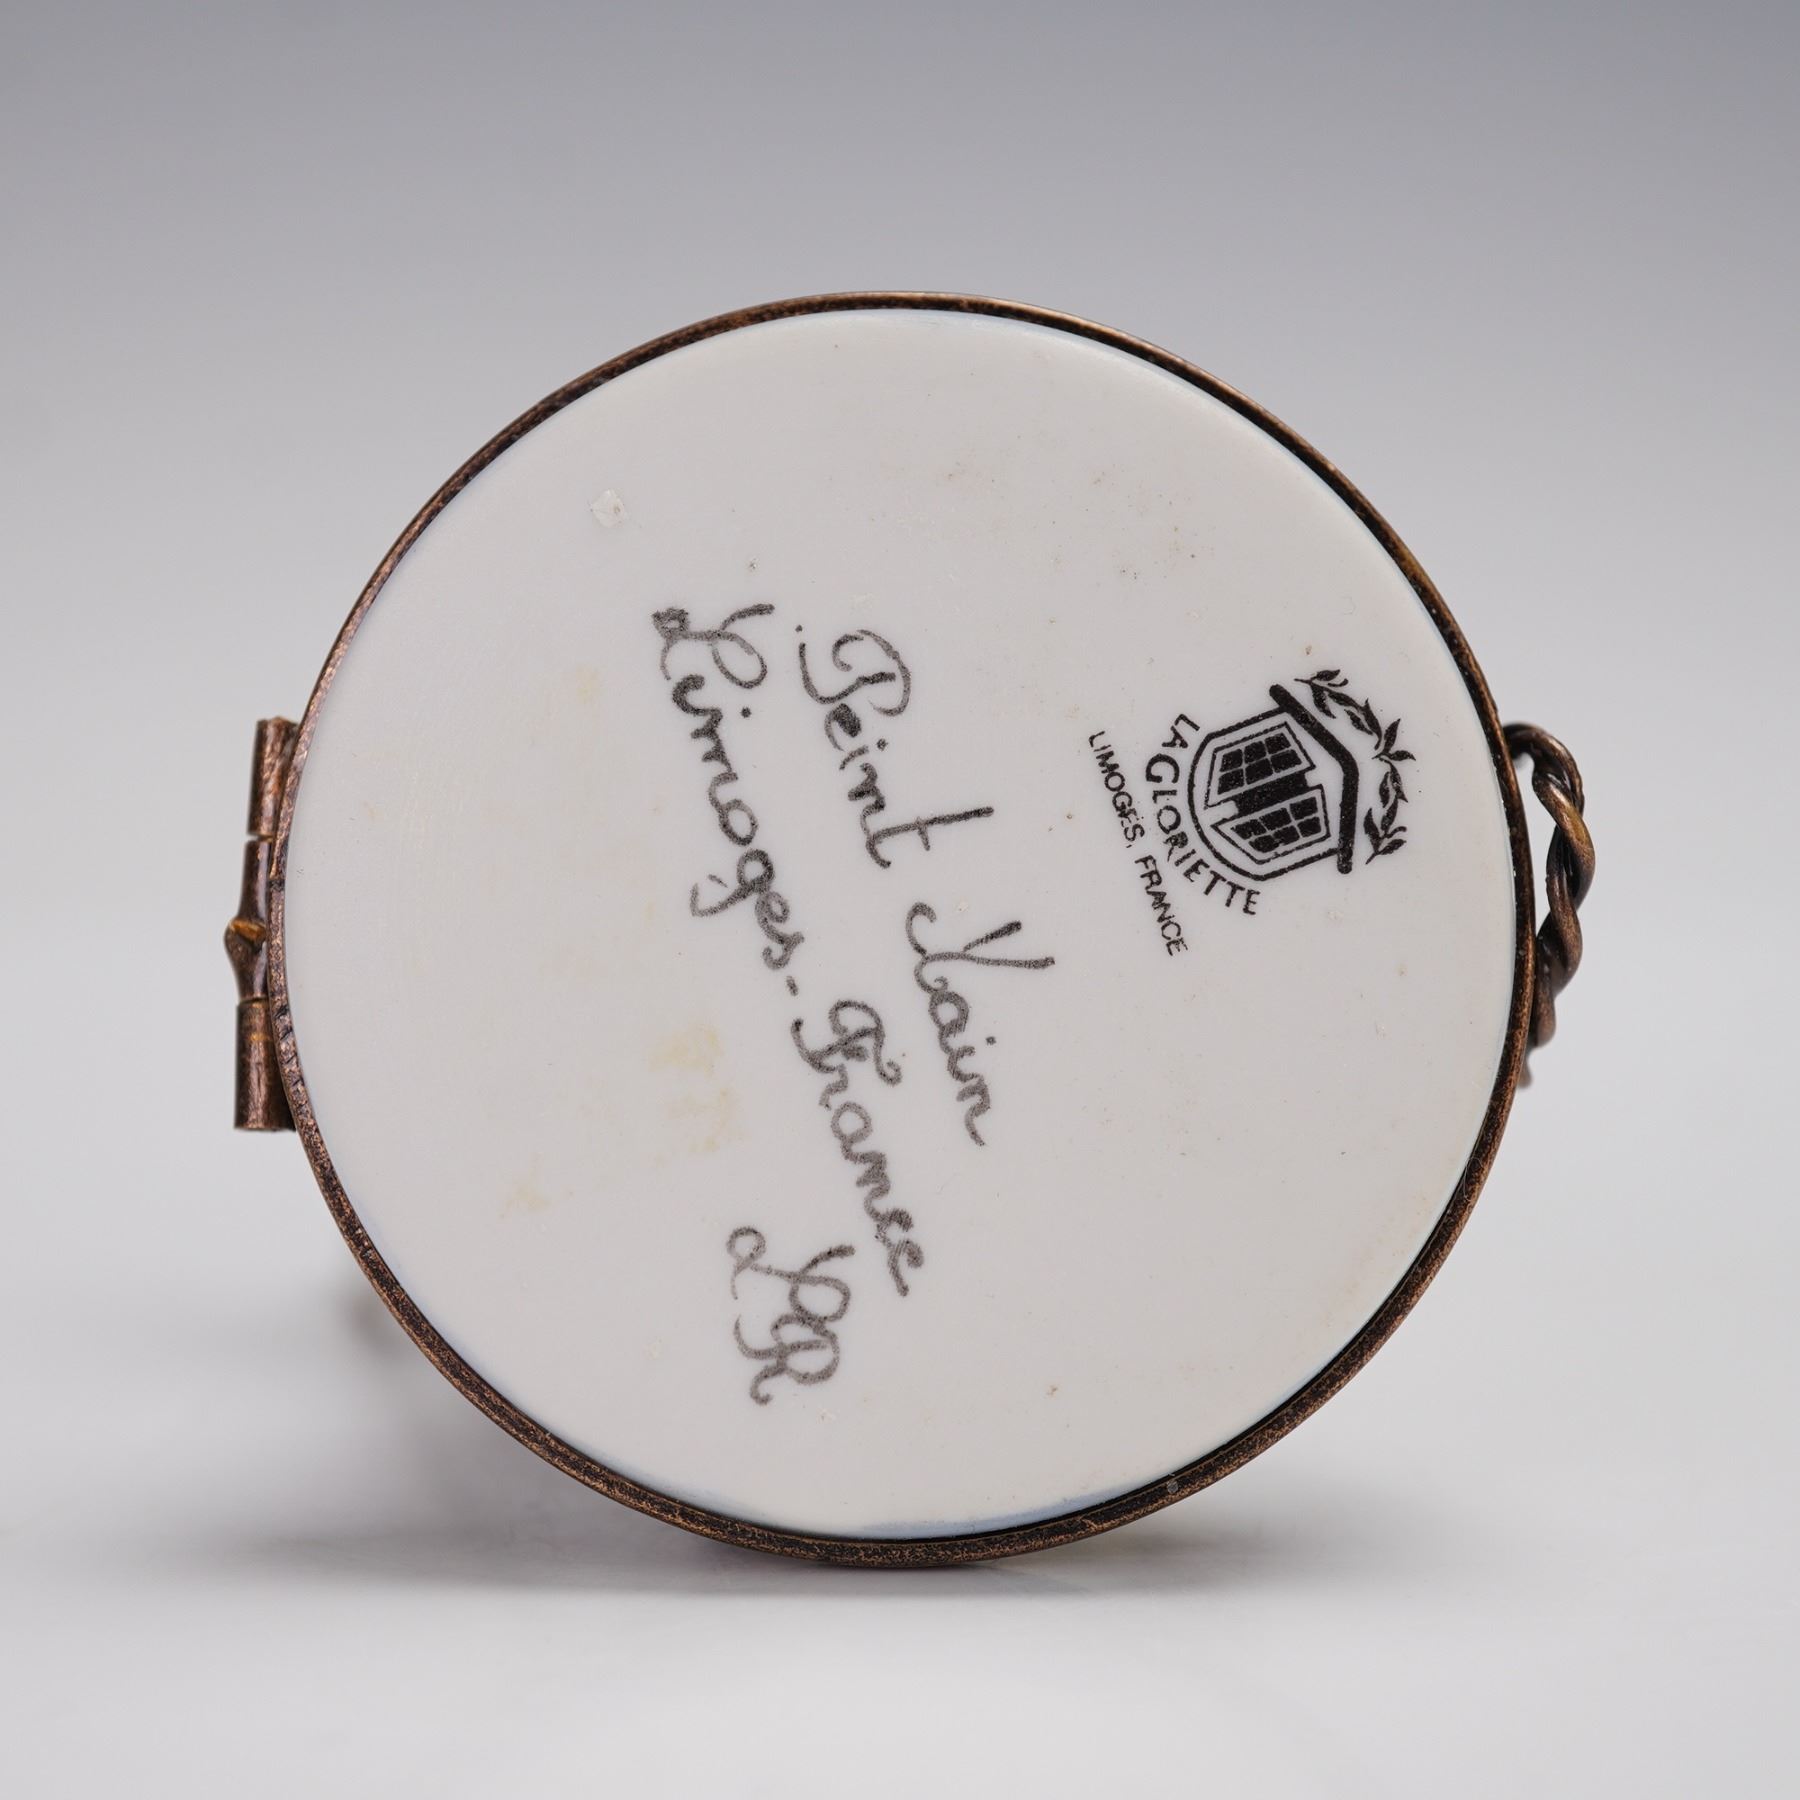 LA GLORIETTE
LIMOGES, FRANCE
Peint Main
Limoges-France